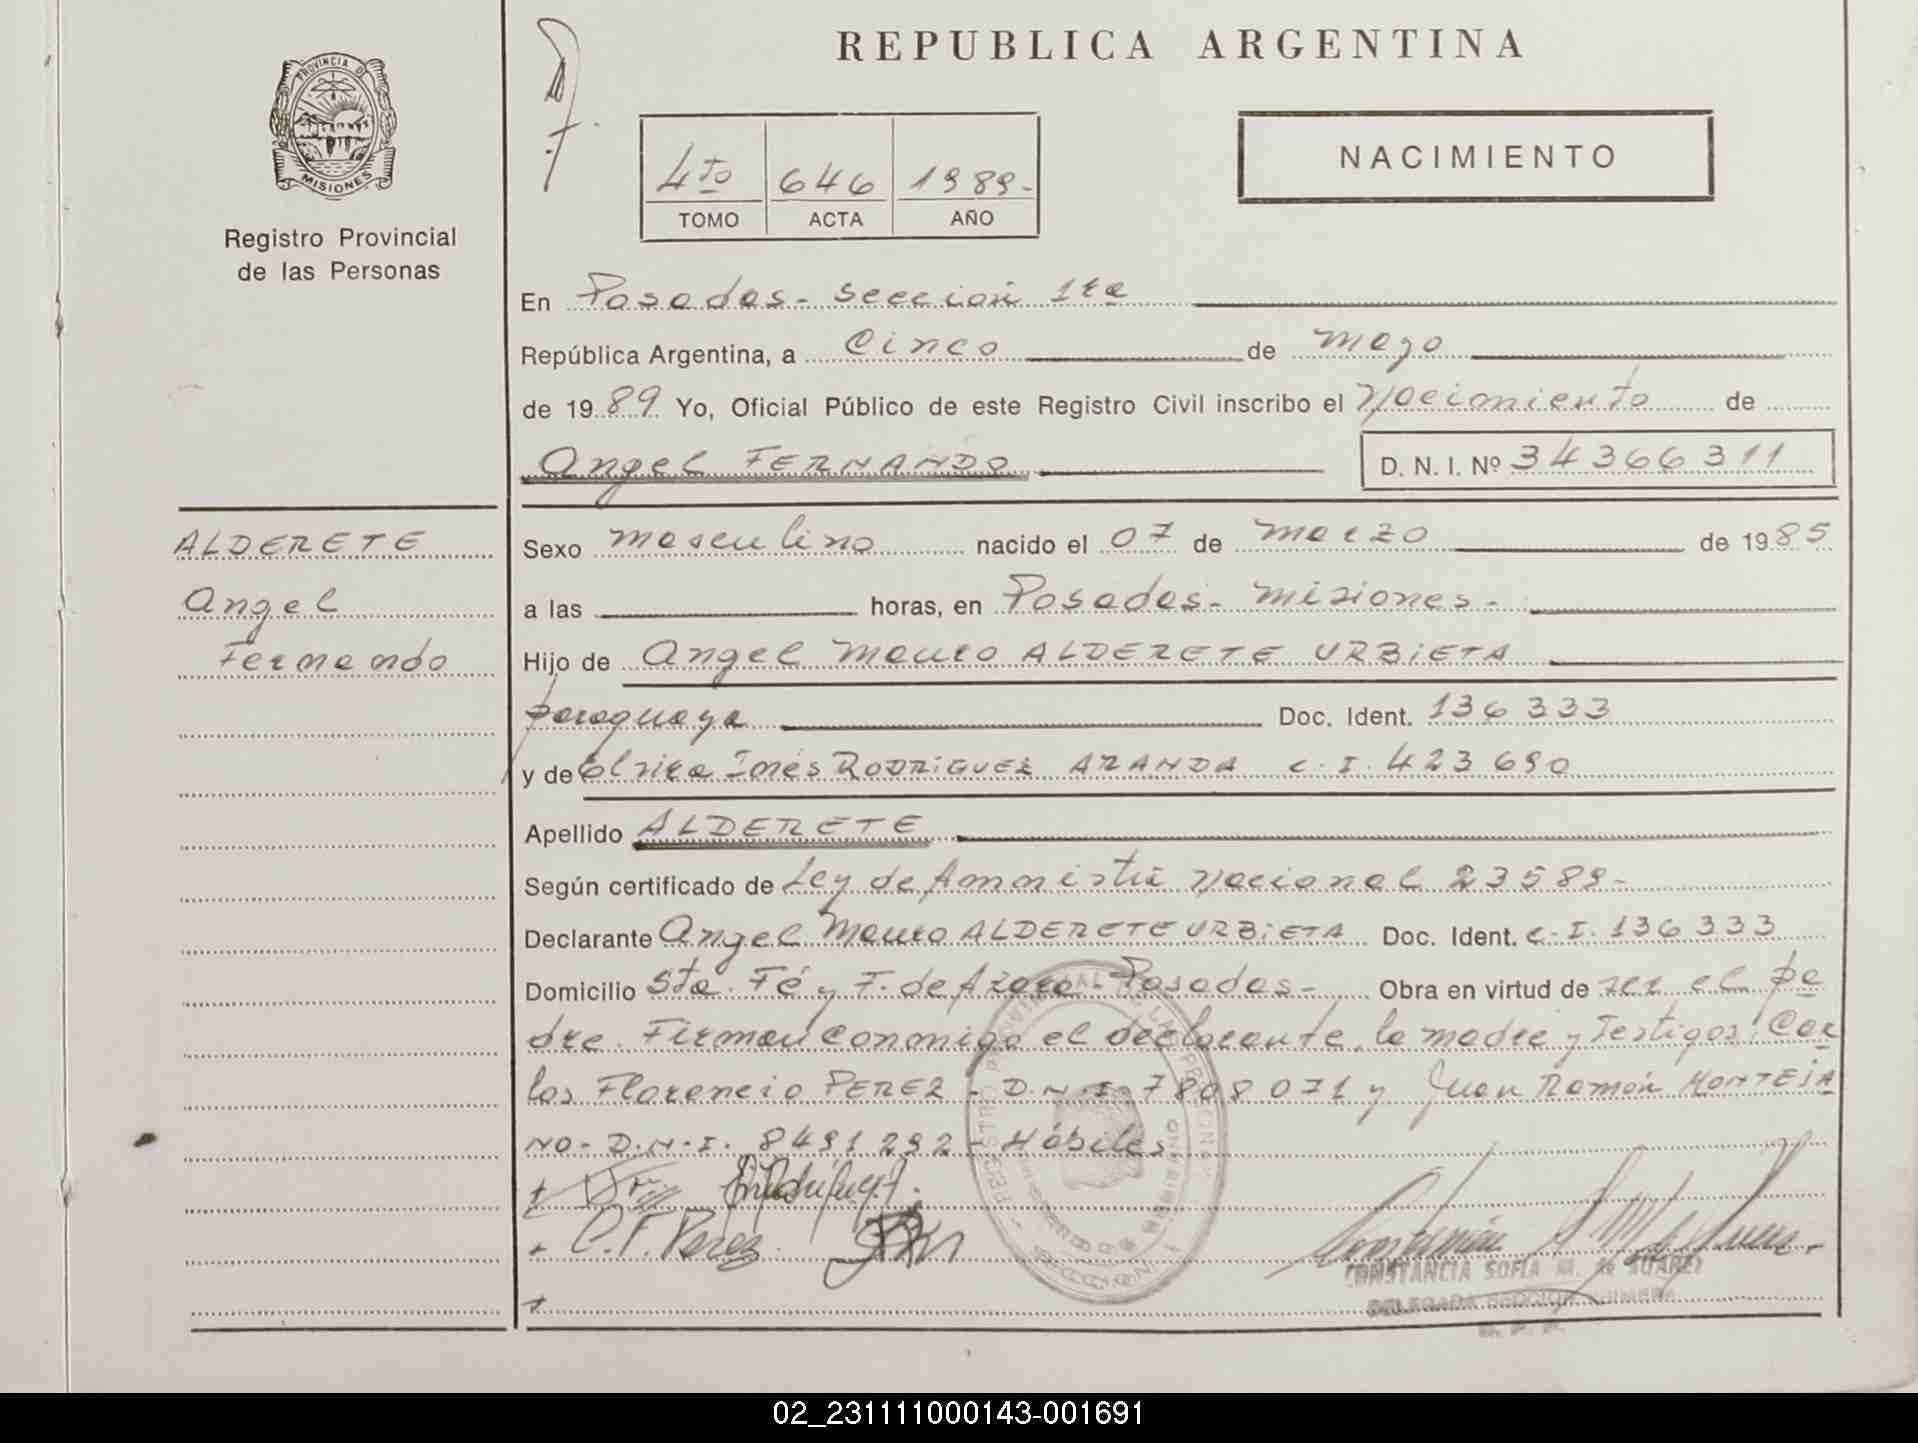 REPUBLICA ARGENTINA
PROVINCIA DE
MISIONES
Registro Provincial
de las Personas
4to 646 1989-
TOMO ACTA AÑO
NACIMIENTO
En Posadas- Sección 1ra
República Argentina, a Cinco de mayo
de 1989 Yo, Oficial Público de este Registro Civil inscribo el Nacimiento de
Angel FERNANDO D. N. I. Nº 34366311
ALDERETE
Angel
Fernando
Sexo masculino nacido el 07 de marzo de 1985
a las horas, en Posadas- misiones-
Hijo de Angel Mauro ALDERETE URBIETA
paraguaya Doc. Ident. 136 333
y de Elvira Inés RODRIGUEZ ARANDA C.I. 423 690
Apellido ALDERETE
Según certificado de Ley de Amnistia Nacional 23589-
Declarante Angel Mauro ALDERETE URBIETA Doc. Ident. C.I. 136 333
Domicilio Sta. Fé y F. de Azara- Posadas- Obra en virtud de ser el pa
dre. Firman conmigo el declarante, la madre y Testigos: Car
los Florencio PEREZ - D.N.I. 7808071 y Juan Ramón MONTEJA
NO- D.N.I. 8491292 - Hábiles
C.F. Perez
CONSTANCIA SOFIA M. de SUAREZ
DELEGADA SECCION PRIMERA
02_231111000143-001691